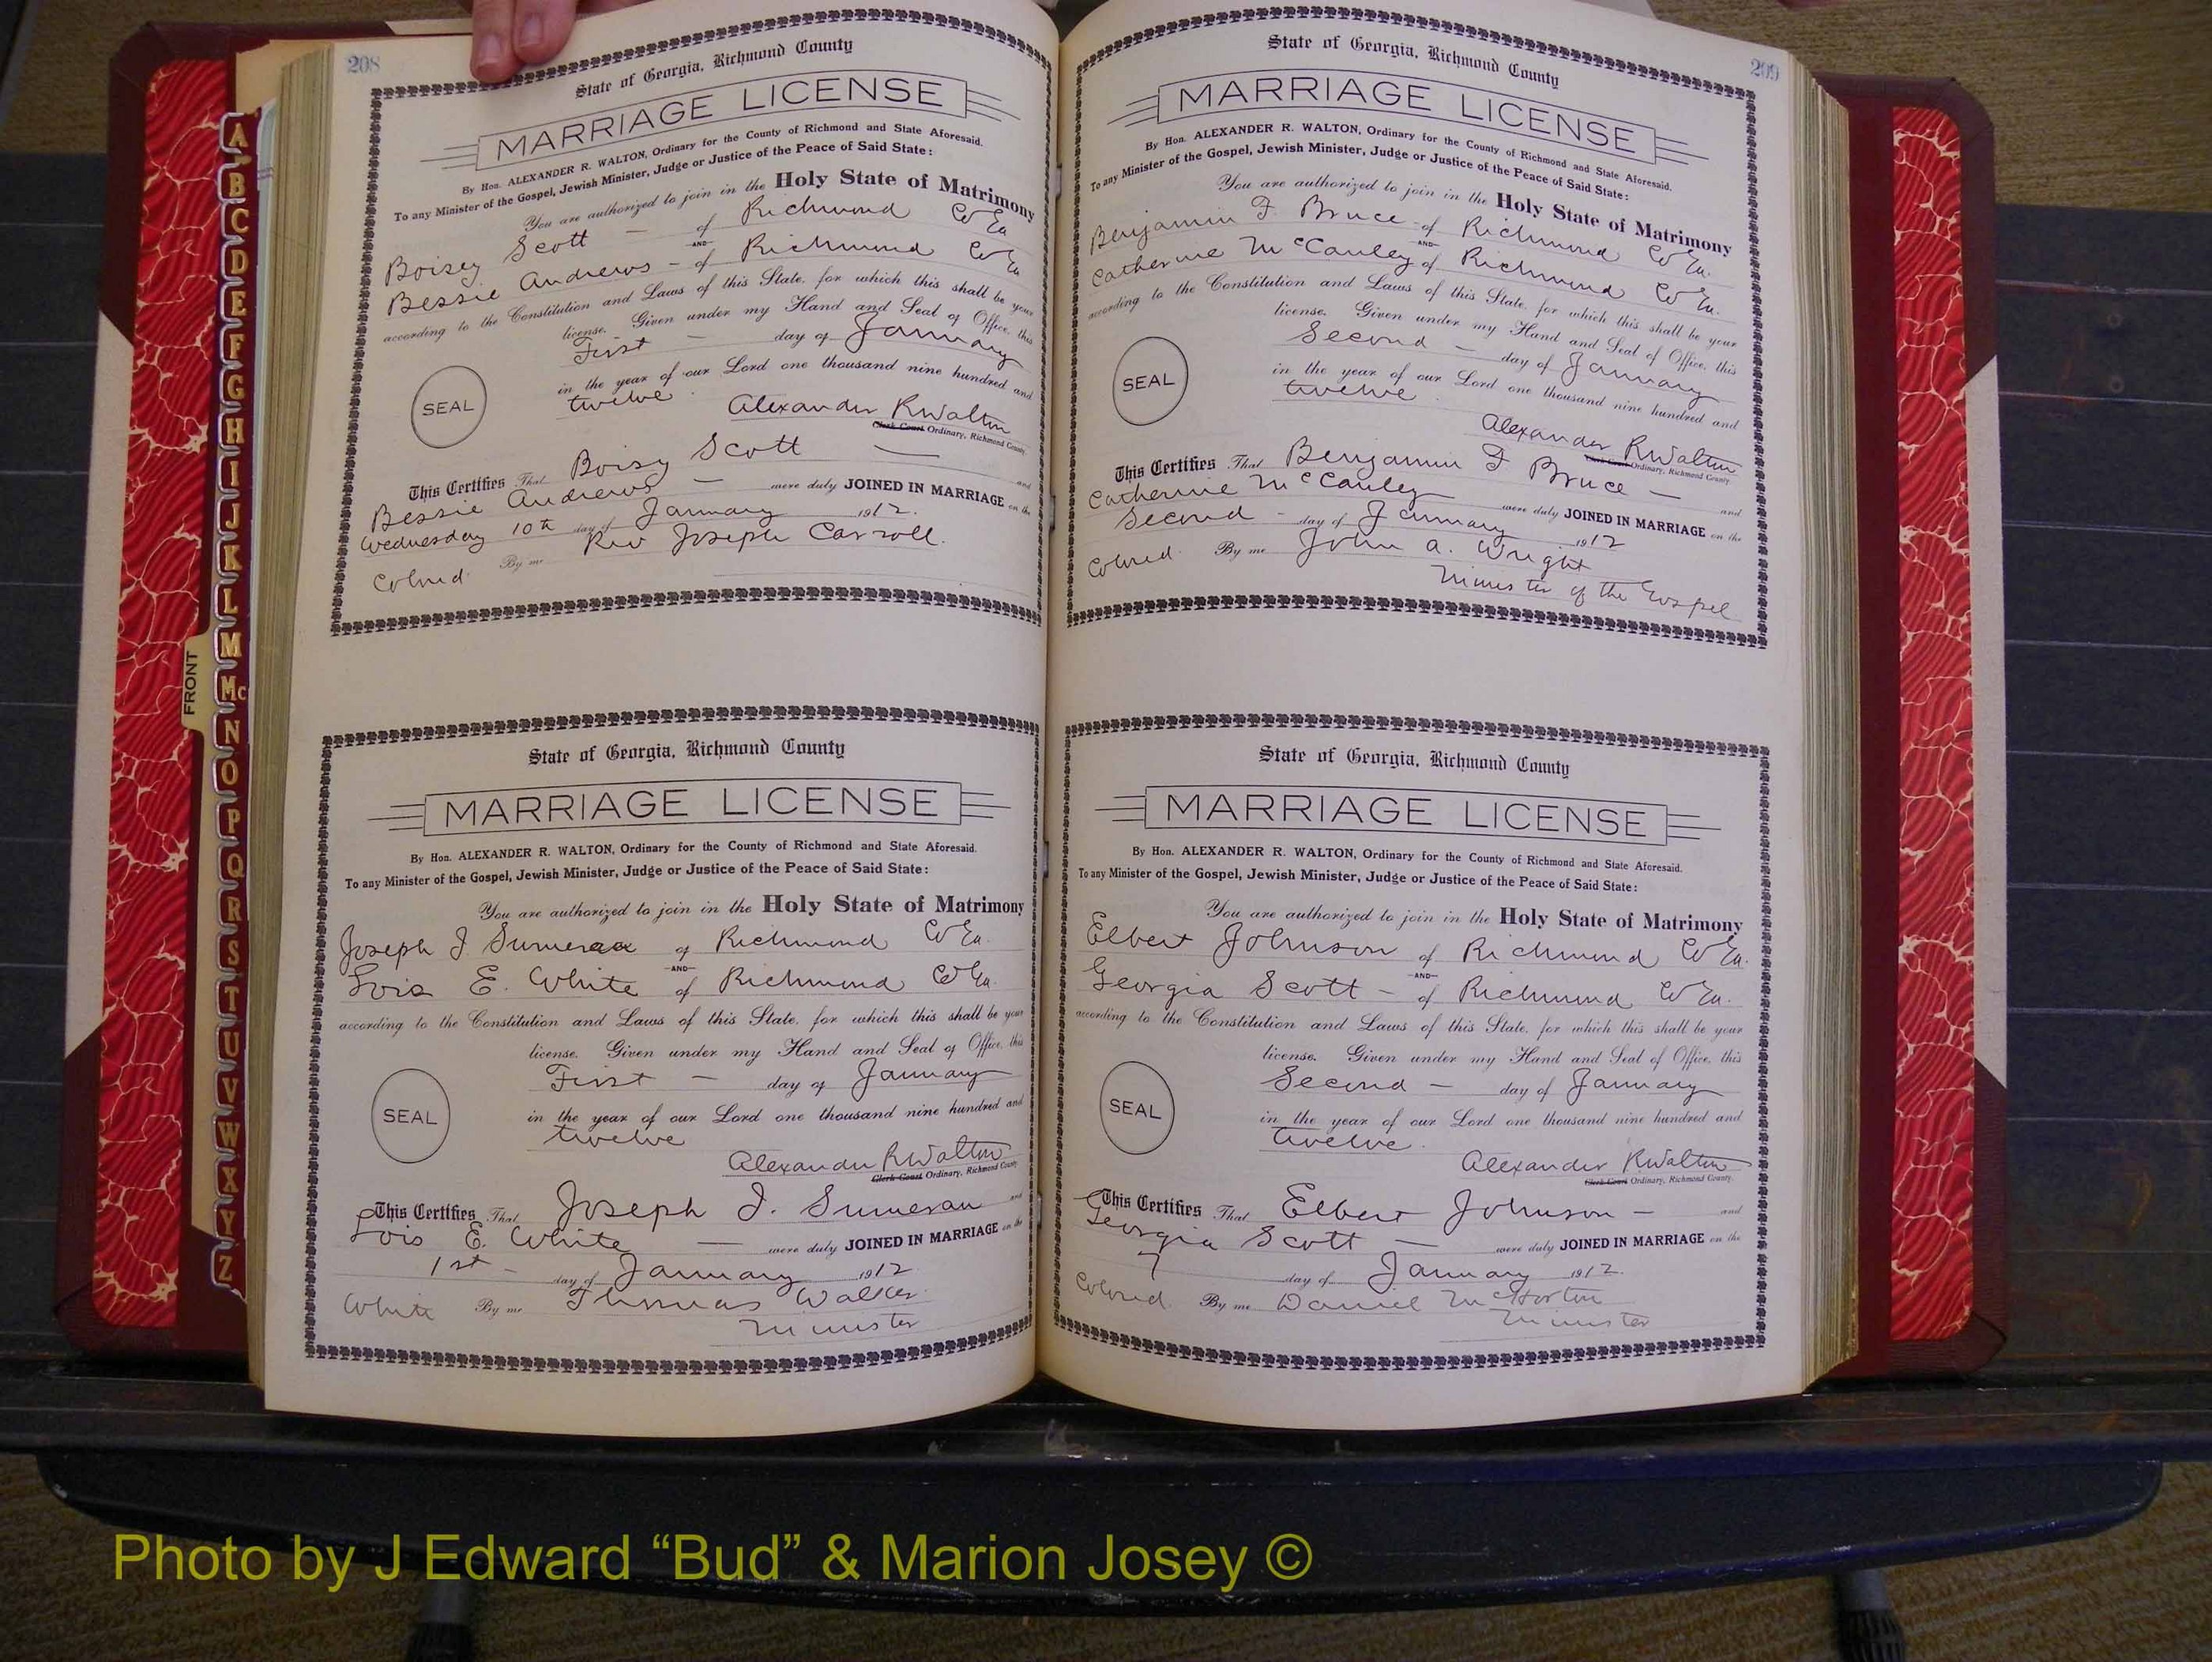 A
B
C
D
E
F
G
H
I
J
K
L
M
Mc
N
O
P
Q
R
S
T
U
V
W
X
Y
Z
FRONT
208
State of Georgia, Richmond County
MARRIAGE LICENSE
By Hon. ALEXANDER R. WALTON, Ordinary for the County of Richmond and State Aforesaid.
To any Minister of the Gospel, Jewish Minister, Judge or Justice of the Peace of Said State:
You are authorized to join in the Holy State of Matrimony
Boisey Scott - of Richmond Co Ga
-AND-
Bessie Andrews - of Richmond Co Ga
according to the Constitution and Laws of this State, for which this shall be your
license. Given under my Hand and Seal of Office, this
First - day of January
in the year of our Lord one thousand nine hundred and
twelve.
SEAL
Alexander R Walton
Clerk Court Ordinary, Richmond County
This Certifies That Boisy Scott — and
Bessie Andrews — were duly JOINED IN MARRIAGE on the
Wednesday 10th day of January 1912.
Colored By me Rev Joseph Carroll.
State of Georgia, Richmond County
MARRIAGE LICENSE
By Hon. ALEXANDER R. WALTON, Ordinary for the County of Richmond and State Aforesaid.
To any Minister of the Gospel, Jewish Minister, Judge or Justice of the Peace of Said State:
You are authorized to join in the Holy State of Matrimony
Joseph I. Sumerau of Richmond Co Ga.
-AND-
Lois E. White of Richmond Co Ga.
according to the Constitution and Laws of this State, for which this shall be your
license. Given under my Hand and Seal of Office, this
First - day of January
in the year of our Lord one thousand nine hundred and
twelve
SEAL
Alexander R Walton
Clerk Court Ordinary, Richmond County
This Certifies That Joseph I. Sumerau and
Lois E. White — were duly JOINED IN MARRIAGE on the
1st - day of January 1912
White By me Thomas Walker.
Minister
209
State of Georgia, Richmond County
MARRIAGE LICENSE
By Hon. ALEXANDER R. WALTON, Ordinary for the County of Richmond and State Aforesaid.
To any Minister of the Gospel, Jewish Minister, Judge or Justice of the Peace of Said State:
You are authorized to join in the Holy State of Matrimony
Benjamin F. Bruce - of Richmond Co Ga.
-AND-
Catherine McCauley of Richmond Co Ga.
according to the Constitution and Laws of this State, for which this shall be your
license. Given under my Hand and Seal of Office, this
Second - day of January
in the year of our Lord one thousand nine hundred and
twelve.
SEAL
Alexander R Walton
Clerk Court Ordinary, Richmond County
This Certifies That Benjamin F Bruce — and
Catherine McCauley were duly JOINED IN MARRIAGE on the
Second - day of January 1912
Colored. By me John A. Wright
Minister of the Gospel
State of Georgia, Richmond County
MARRIAGE LICENSE
By Hon. ALEXANDER R. WALTON, Ordinary for the County of Richmond and State Aforesaid.
To any Minister of the Gospel, Jewish Minister, Judge or Justice of the Peace of Said State:
You are authorized to join in the Holy State of Matrimony
Elbert Johnson of Richmond Co Ga.
-AND-
Georgia Scott - of Richmond Co Ga.
according to the Constitution and Laws of this State, for which this shall be your
license. Given under my Hand and Seal of Office, this
Second - day of January
in the year of our Lord one thousand nine hundred and
twelve.
SEAL
Alexander R Walton
Clerk Court Ordinary, Richmond County.
This Certifies That Elbert Johnson - and
Georgia Scott — were duly JOINED IN MARRIAGE on the
7 day of January 1912.
Colored. By me Daniel McHorton
Minister
Photo by J Edward “Bud” & Marion Josey ©